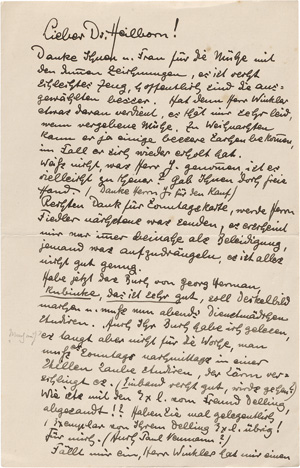 Lieber Dr. Heilborn!
Danke Ihnen u. Frau für die Mühe mit
den Zeichnungen, es ist recht
schlechtes Zeug, hoffentlich sind die aus-
gewählten besser. Hat denn Herr Winkler
etwas daran verdient, es thät mir sehr leid,
wenn vergebene Mühe. Zu Weihnachten
kann er ja einige bessere Sachen bekommen,
im Fall er sich wieder erholt hat.
Weiß nicht, was Herr J. genommen, ist es
vielleicht zu Gab Ihnen doch freie
Hand. (Danke Herrn J. für den Kauf)
Rechten Dank für Sonntagskarte, werde Herrn
Fiedler nächstens was senden, es erscheint
mir nur immer beinahe als Beleidigung,
jemand was aufzudrängeln, es ist alles
nicht gut genug.
Habe jetzt das Buch von Georg Herman,
Kubinke, das ist sehr gut, soll Deckelbild
machen u. muß nun abends Dienstmädchen
studieren. Auch Ihr Buch habe ich gelesen,
es langt aber nicht für die Woche, man
muß es Sonntags nachmittags in einer
stillen Laube studieren, der Lärm ver-
schlingt es. (Einband recht gut, würde gehen)
Wie ists mit den Ex l. vom Freund Delling,
abgesandt!? Haben Sie mal gelegentlich
1 Exemplar von Ihrem Delling Ex l. übrig!
Für mich. (Auch Paul Neumann?)
Fällt mir ein, Herr Winkler hat mir einen